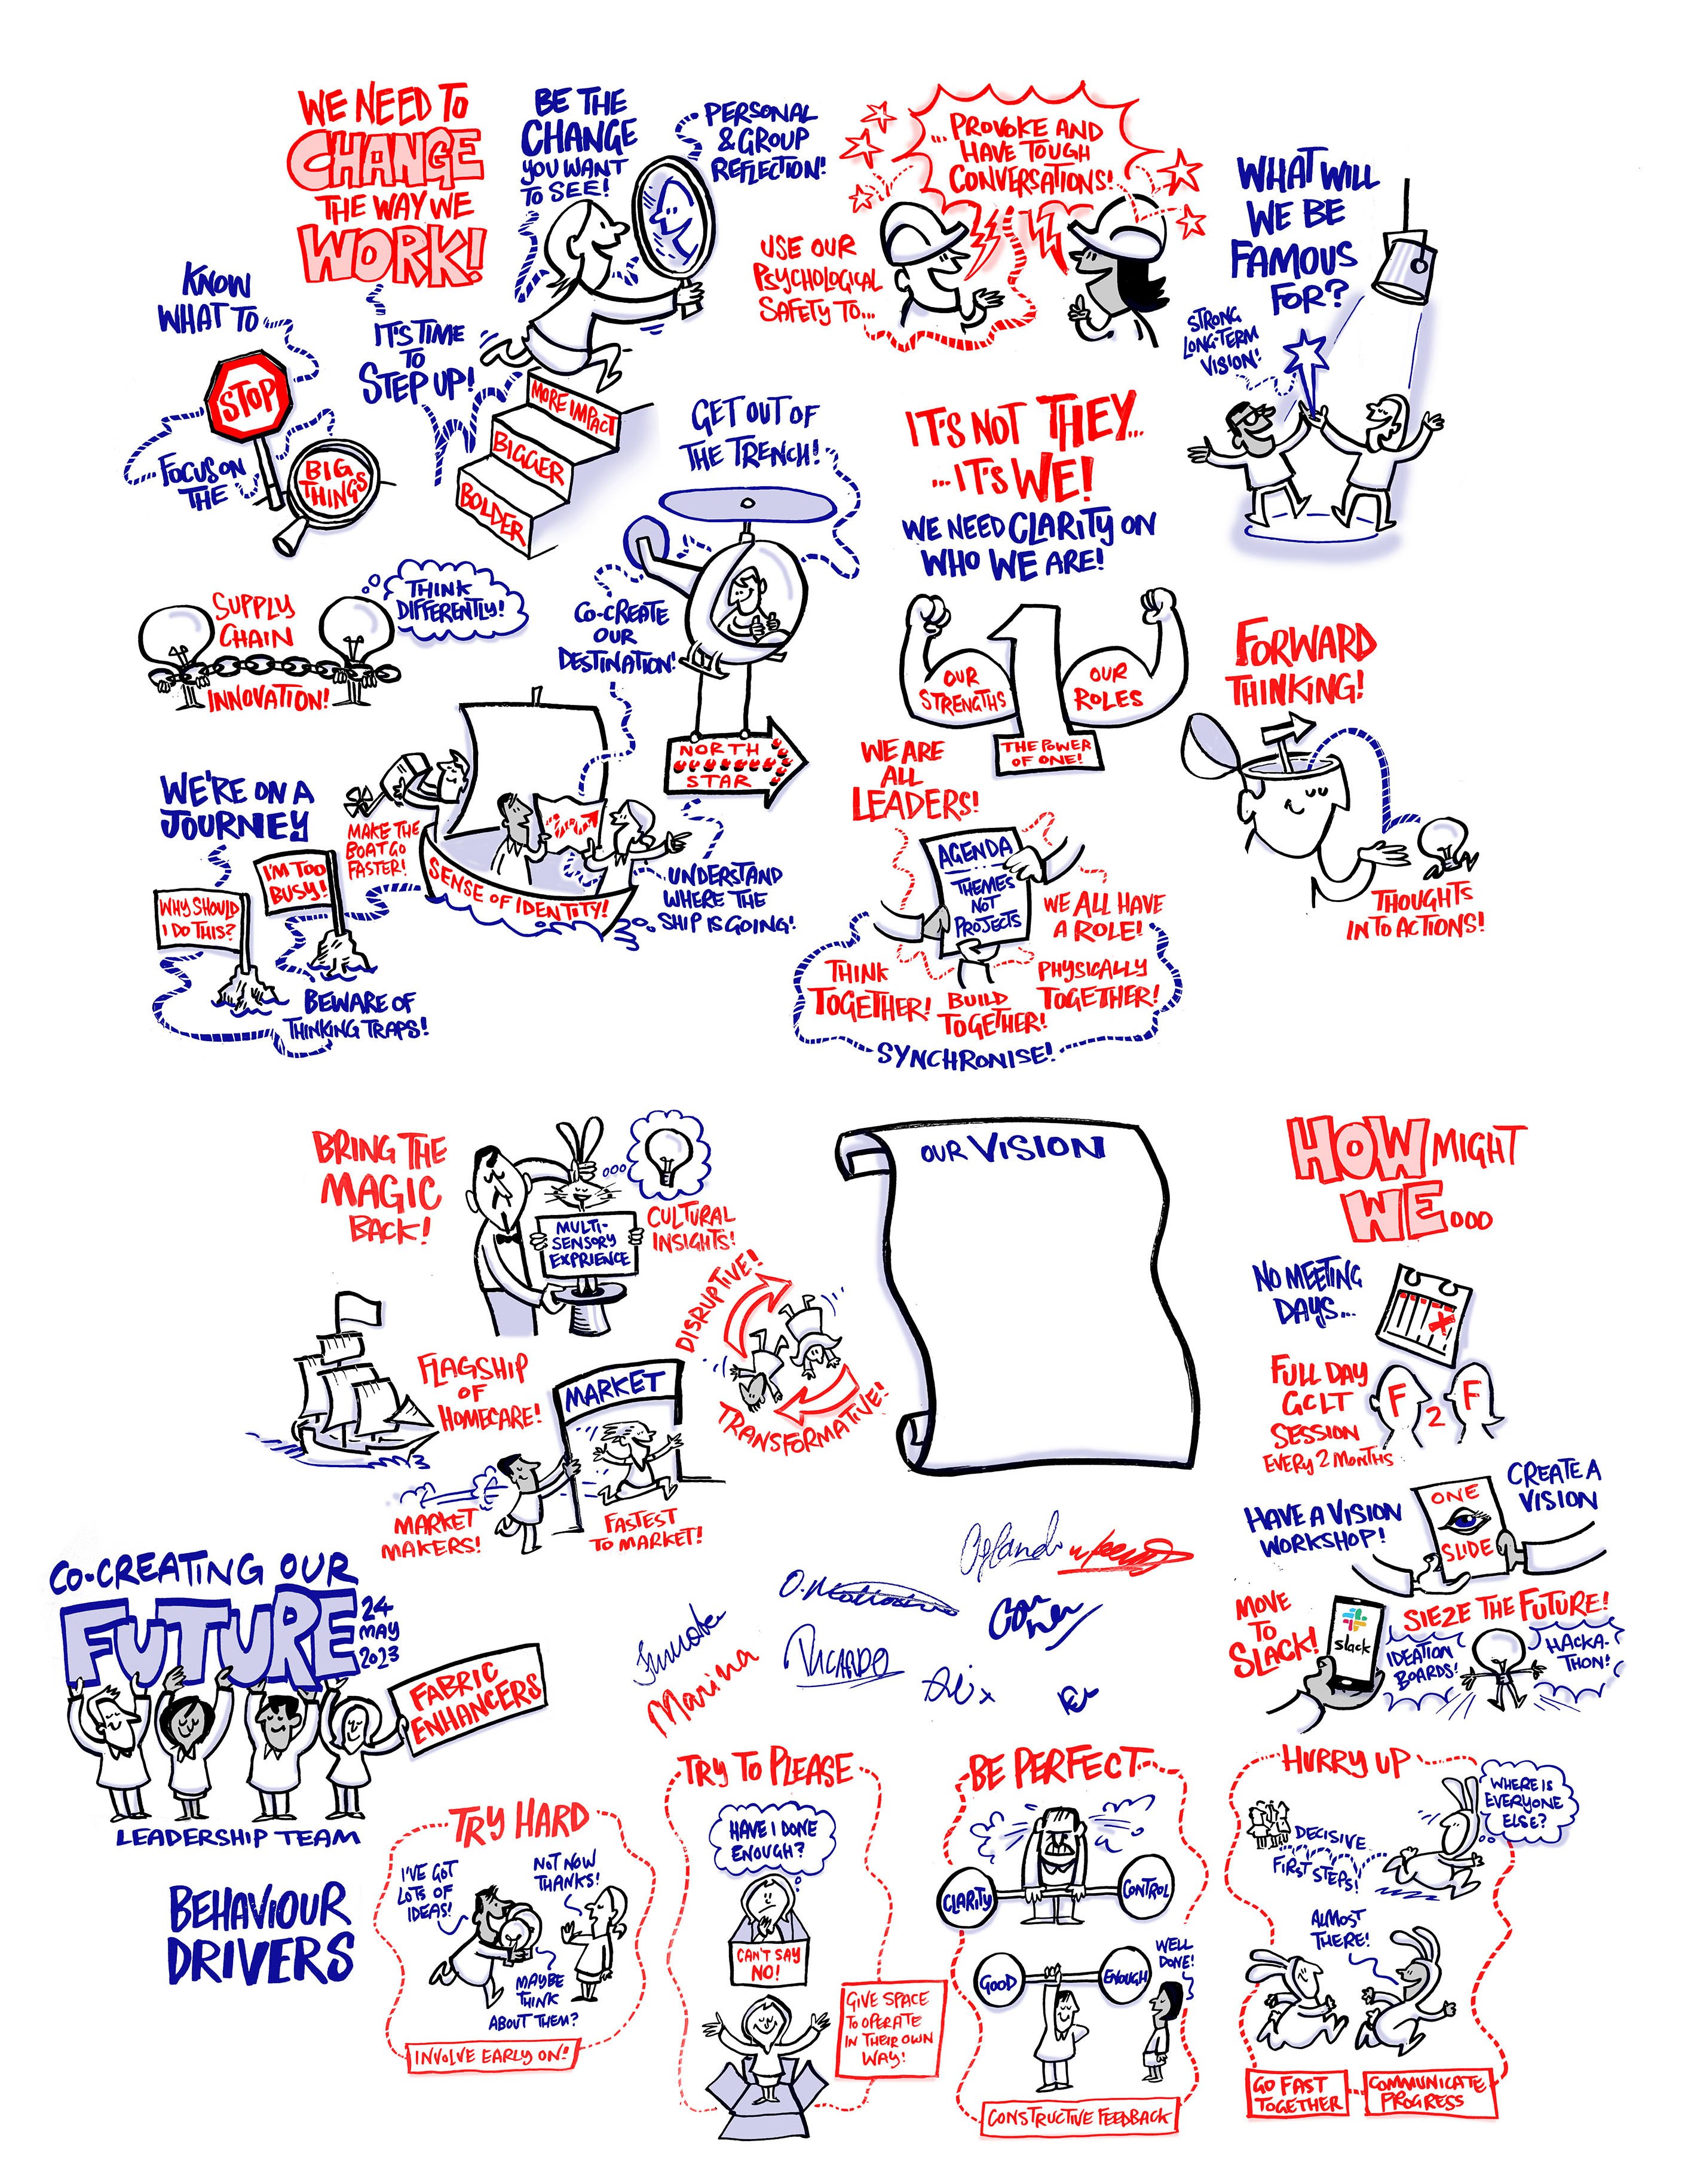 WE NEED TO
CHANGE
THE WAY WE
WORK!
BE THE
CHANGE
YOU WANT
TO SEE!
PERSONAL
& GROUP
REFLECTION!
KNOW
WHAT TO
STOP
FOCUS ON
THE
BIG
THINGS
IT'S TIME
TO
STEP UP!
MORE IMPACT
BIGGER
BOLDER
USE OUR
PSYCHOLOGICAL
SAFETY TO...
...PROVOKE AND
HAVE TOUGH
CONVERSATIONS!
WHAT WILL
WE BE
FAMOUS
FOR?
STRONG
LONG-TERM
VISION!
GET OUT OF
THE TRENCH!
IT'S NOT THEY...
...IT'S WE!
WE NEED CLARITY ON
WHO WE ARE!
OUR
STRENGTHS
1
OUR
ROLES
THE POWER
OF ONE!
SUPPLY
CHAIN
INNOVATION!
THINK
DIFFERENTLY!
CO-CREATE
OUR
DESTINATION!
NORTH
STAR
WE'RE ON A
JOURNEY
MAKE THE
BOAT GO
FASTER!
SENSE OF IDENTITY!
UNDERSTAND
WHERE THE
SHIP IS GOING!
I'M TOO
BUSY!
WHY SHOULD
I DO THIS?
BEWARE OF
THINKING TRAPS!
WE ARE
ALL
LEADERS!
AGENDA
THEMES
NOT
PROJECTS
WE ALL HAVE
A ROLE!
THINK
TOGETHER!
BUILD
TOGETHER!
PHYSICALLY
TOGETHER!
SYNCHRONISE!
FORWARD
THINKING!
THOUGHTS
INTO ACTIONS!
BRING THE
MAGIC
BACK!
MULTI-
SENSORY
EXPRIENCE
CULTURAL
INSIGHTS!
DISRUPTIVE!
TRANSFORMATIVE!
FLAGSHIP
OF
HOMECARE!
MARKET
MARKET
MAKERS!
FASTEST
TO MARKET!
OUR VISION
HOW MIGHT
WE...
NO MEETING
DAYS...
FULL DAY
GCLT
SESSION
EVERY 2 MONTHS
F 2 F
HAVE A VISION
WORKSHOP!
ONE
SLIDE
CREATE A
VISION
MOVE
TO
SLACK!
slack
SIEZE THE FUTURE!
IDEATION
BOARDS!
HACKA-
THON!
CO-CREATING OUR
FUTURE
24
MAY
2023
FABRIC
ENHANCERS
LEADERSHIP TEAM
Marina
RICARDO
Alix
BEHAVIOUR
DRIVERS
TRY HARD
I'VE GOT
LOTS OF
IDEAS!
NOT NOW
THANKS!
MAYBE
THINK
ABOUT THEM?
INVOLVE EARLY ON!
TRY TO PLEASE
HAVE I DONE
ENOUGH?
CAN'T SAY
NO!
GIVE SPACE
TO OPERATE
IN THEIR OWN
WAY!
BE PERFECT
CLARITY
CONTROL
GOOD
ENOUGH
WELL
DONE!
CONSTRUCTIVE FEEDBACK
HURRY UP
WHERE IS
EVERYONE
ELSE?
DECISIVE
FIRST STEPS!
ALMOST
THERE!
GO FAST
TOGETHER
COMMUNICATE
PROGRESS